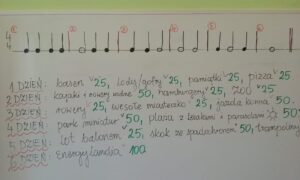 4
4
1 DZIEŃ: basen 25, lody/gofry 25, pamiątki 25, pizza 25
2 DZIEŃ: kajaki i rowery wodne 50, hamburgery 25, ZOO 25
3 DZIEŃ: rowery 25, wesołe miasteczko 25, jazda konna 50
4 DZIEŃ: park miniatur 50, plaża z leżakami i parasolem 50
5 DZIEŃ: lot balonem 25, skok ze spadochronem 50, trampoliny
DZIEŃ: Energylandia 100